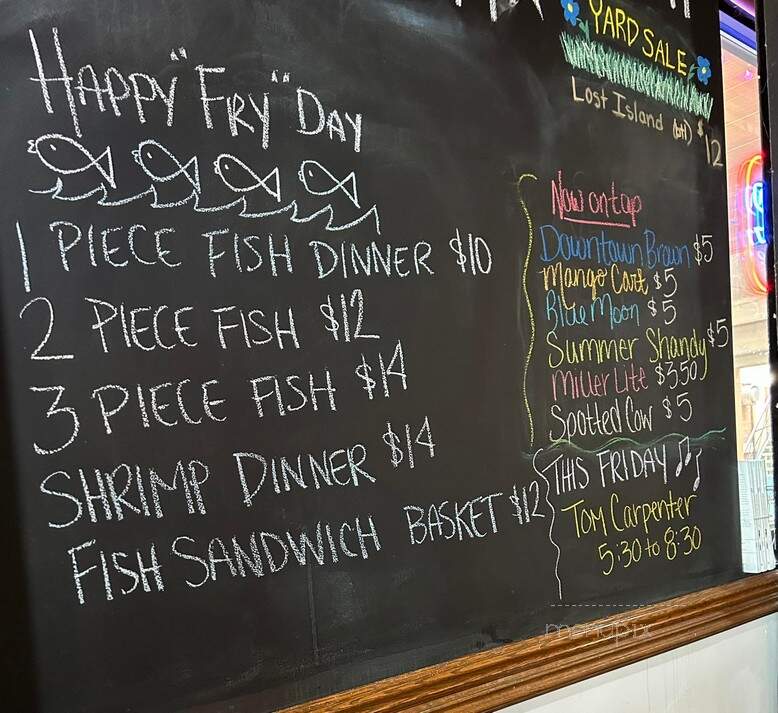 HAPPY "FRY" DAY
1 PIECE FISH DINNER $10
2 PIECE FISH $12
3 PIECE FISH $14
SHRIMP DINNER $14
FISH SANDWICH BASKET $12
YARD SALE
Lost Island (btl) $12
Now on tap
Downtown Brown $5
Mango Cart $5
Blue Moon $5
Summer Shandy $5
Miller Lite $350
Spotted Cow $5
THIS FRIDAY
Tom Carpenter
5:30 to 8:30
menupix